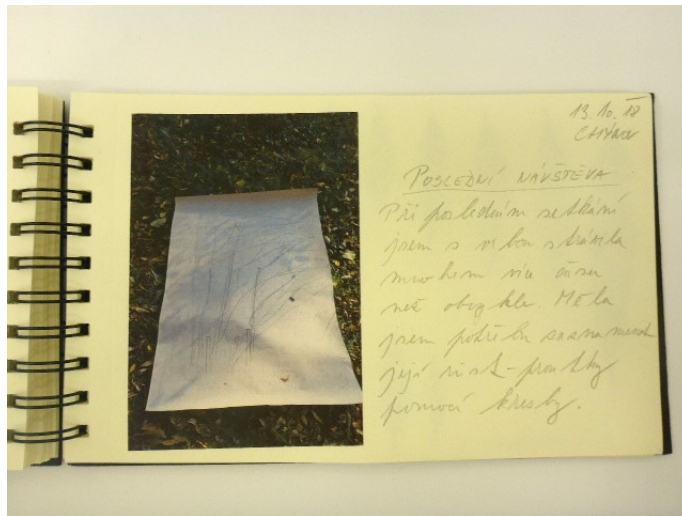 13. 10. 18
POSLEDNÍ NÁVŠTĚVA
Při posledním setkání
jsem s vrbou strávila
mnohem více času
než obvykle. Měla
jsem potřebu zaznamenat
její růst - proutky
pomocí kresby.